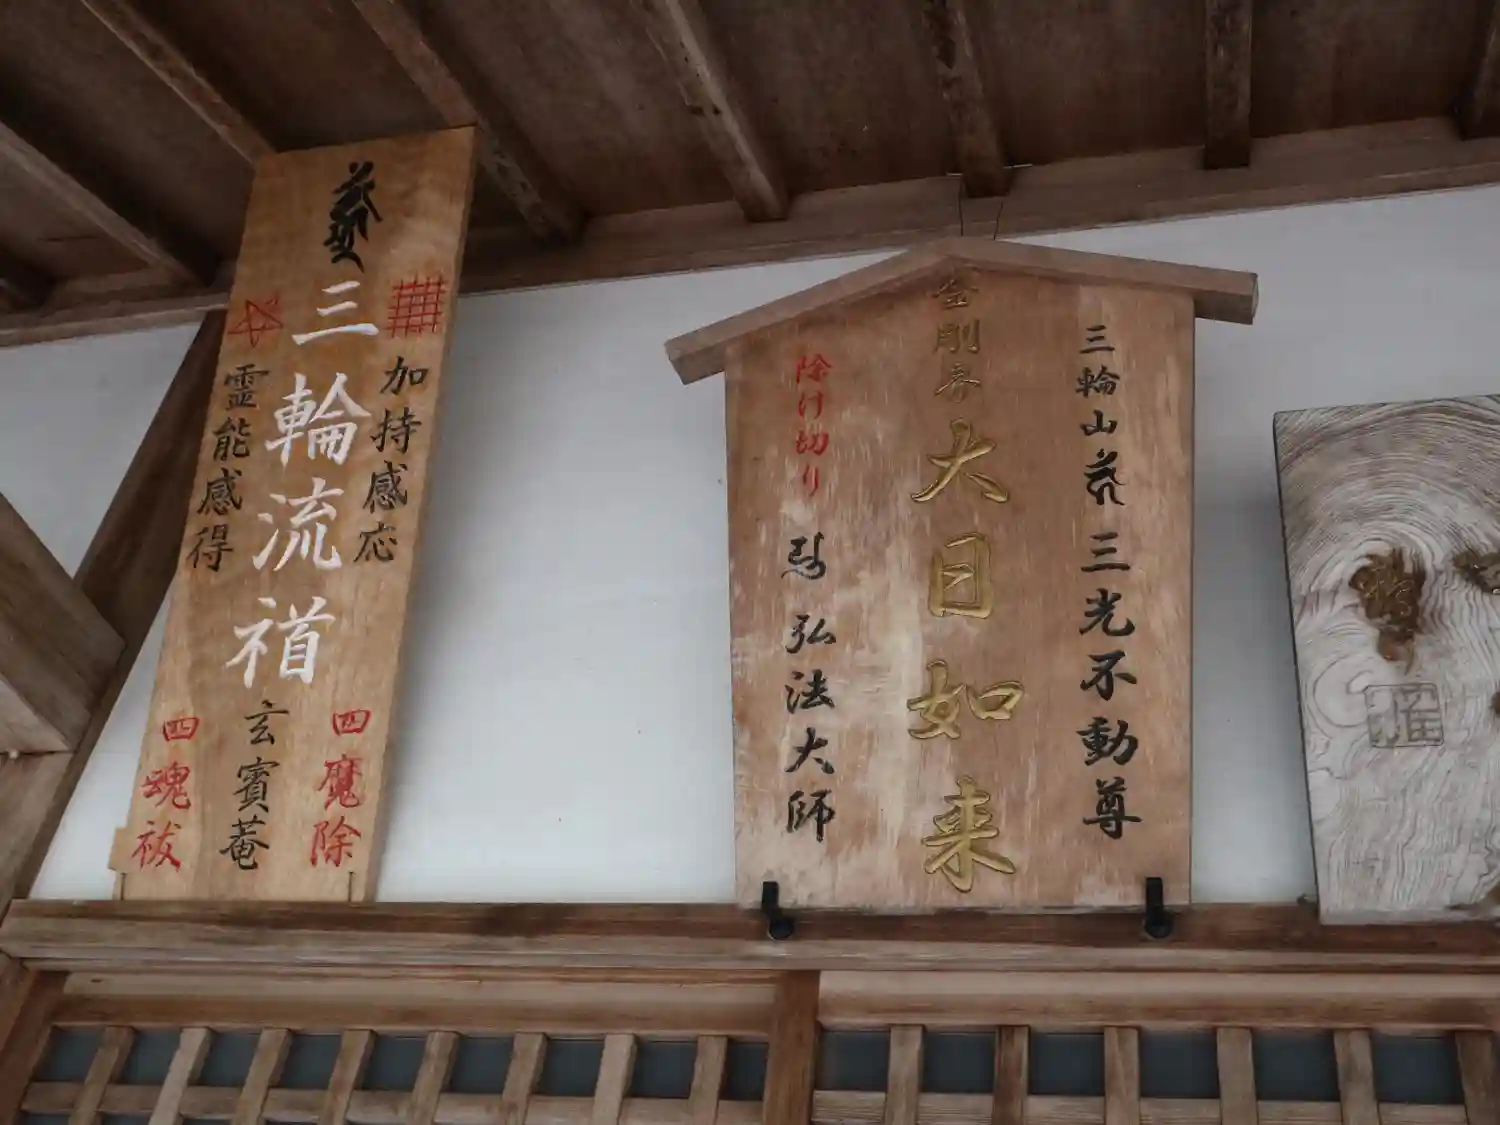 三輪山 三光不動尊
金剛界大日如来
除け切り 弘法大師
加持感応
三輪流
霊能感得
四魔除
玄賓菴
四魂祓